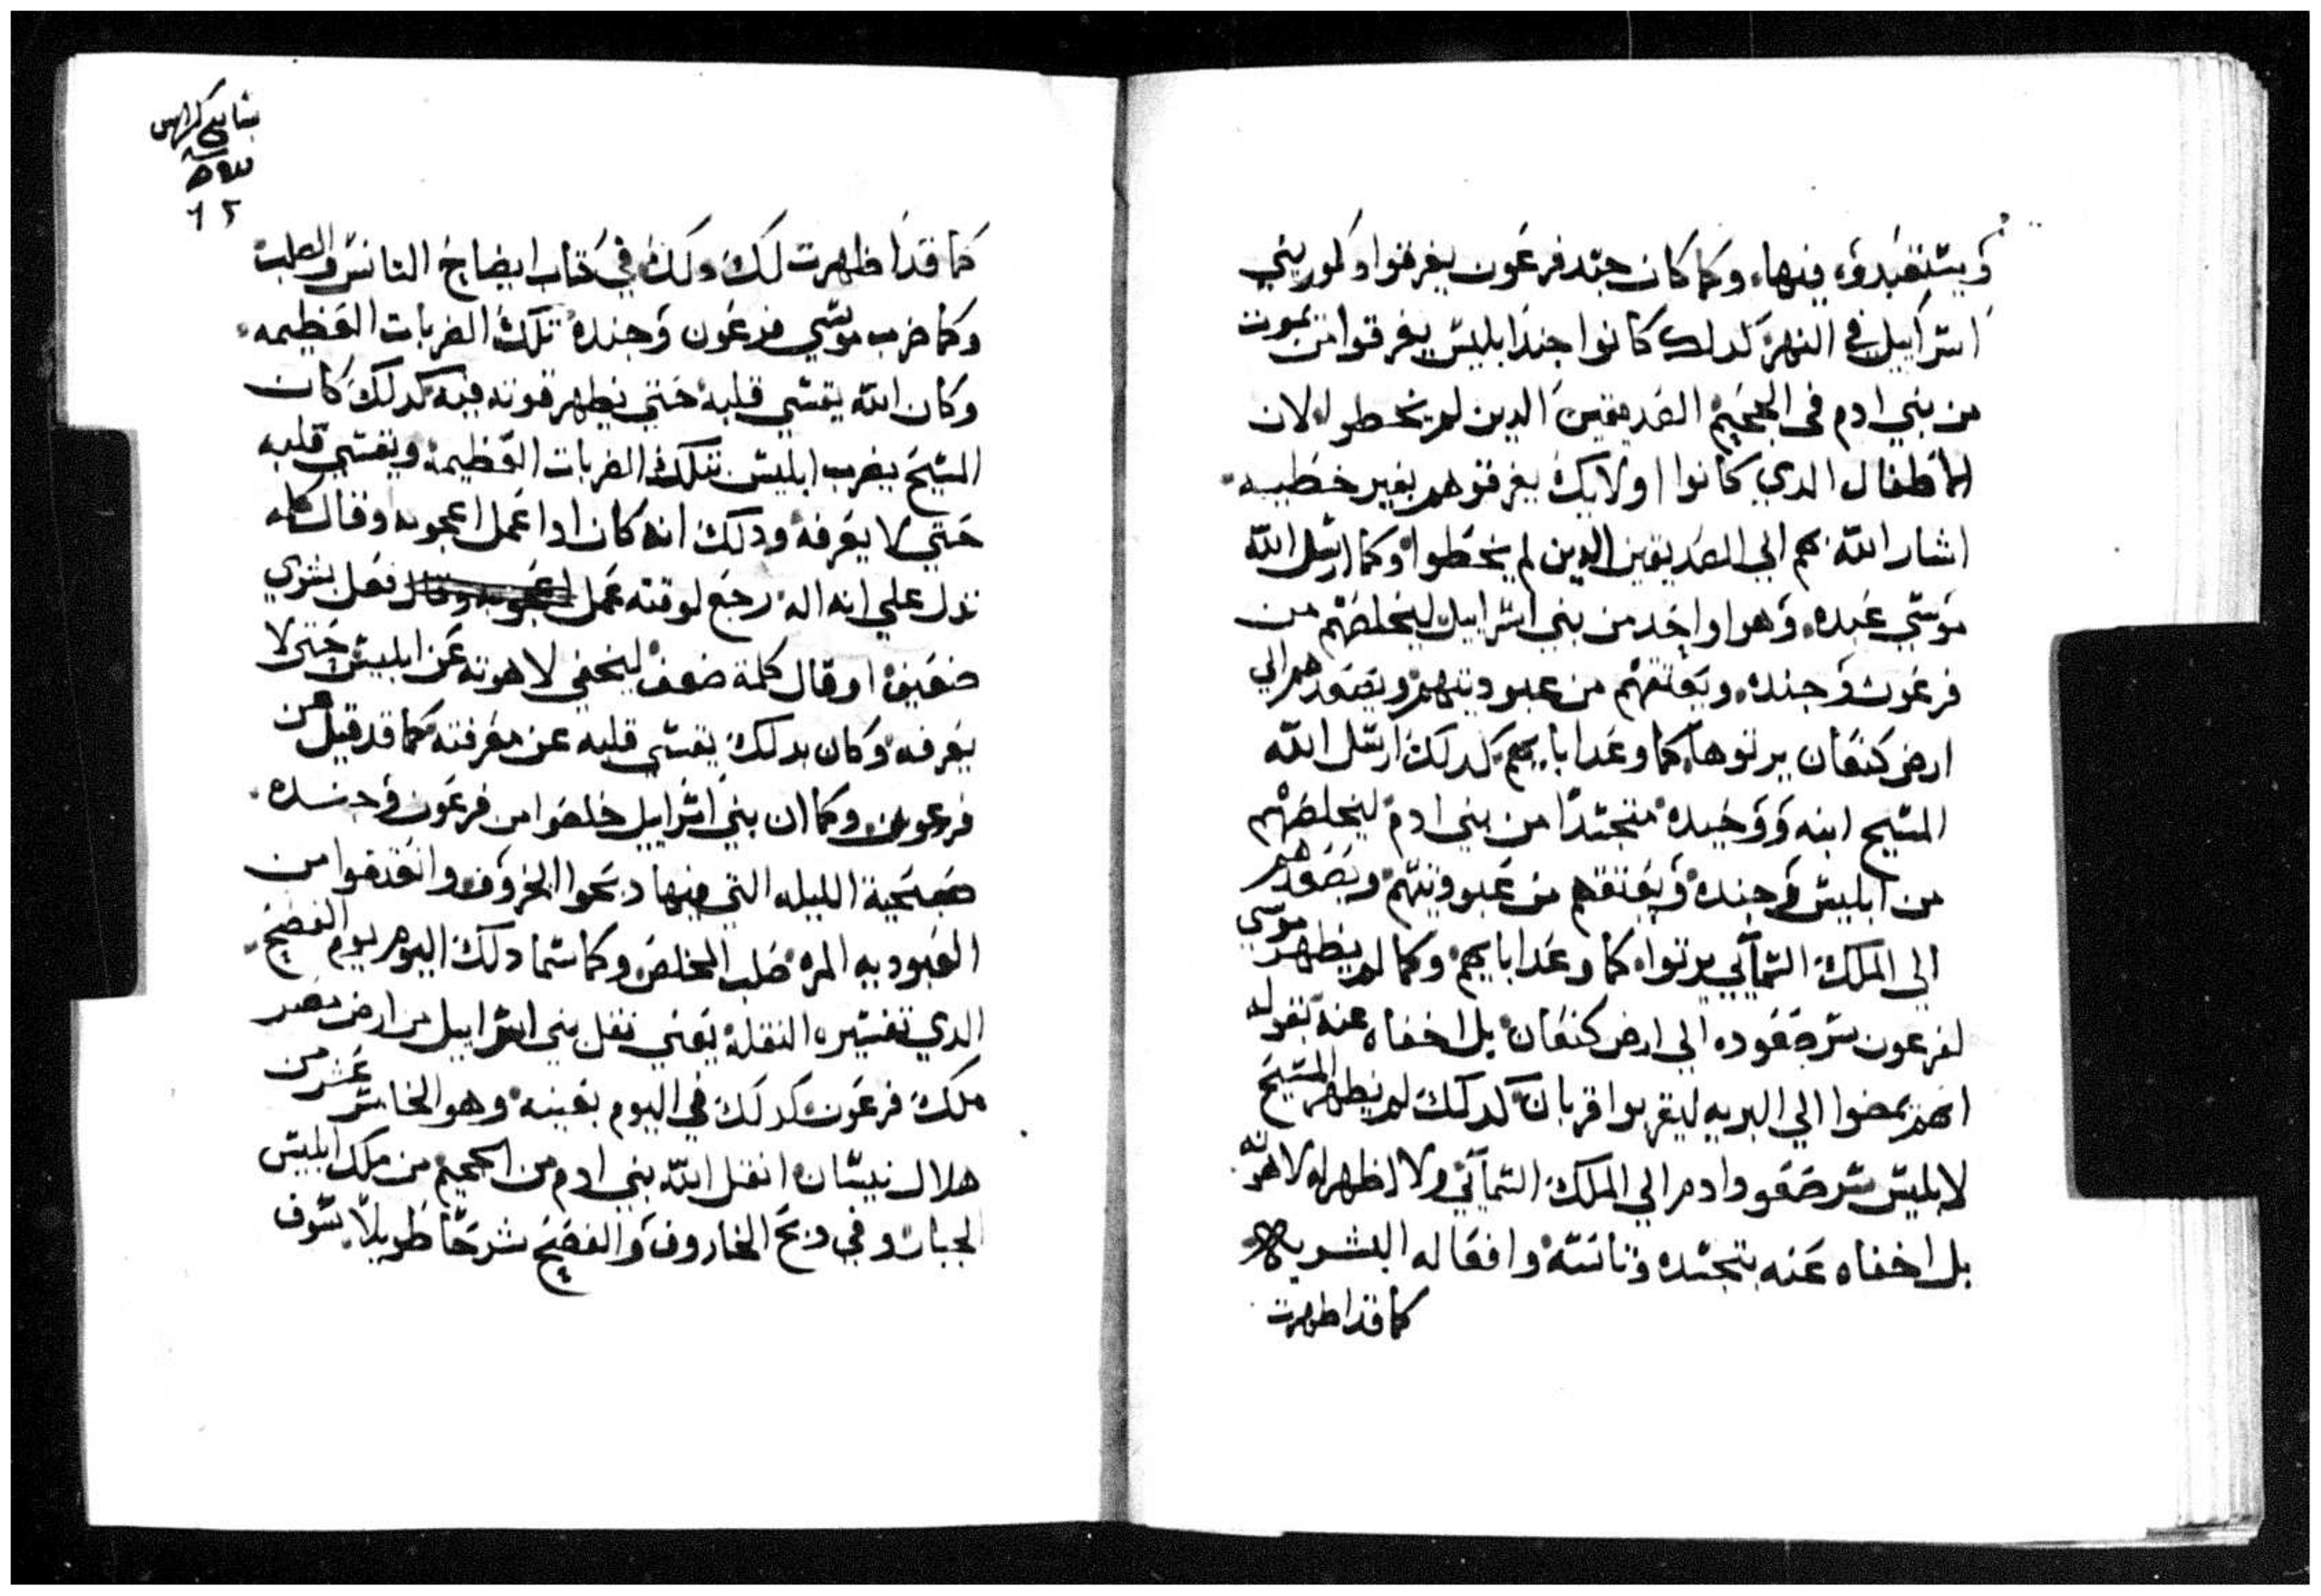 ويستعبدوه فيها. وكما كان جند فرعون يغرقوا دكور بني
اسراييل في النهر كدلك كانوا جند ابليس يغرقوا من يموت
من بني ادم في الجحيم الصديقين الدين لم يخطوا لان
الاطفال الدي كانوا اولايك يغرقوهم بغير خطيه.
اشار الله بهم الي الصديقين الدين لم يخطوا وكما ارسل الله
موسي عبده. وهوا واحد من بني اسراييل ليخلصهم من
فرعون وجنده. ويعتقهم من عبوديتهم ويصعدهم الي
ارض كنعان يرتوها كما وعد ابايهم كدلك ارسل الله
المسيح ابنه ووحيده متجسدا من بني ادم ليخلصهم
من ابليس وجنده ويعتقهم من عبوديتهم ويصعدهم
الي الملك السمآئي يرتوا كما وعد ابايهم وكما لم يظهر موسي
لفرعون سر صعوده الي ارض كنعان بل اخفاه عنه بقوله
انهم يمضوا الي البريه ليقربوا قربان كدلك لم يظهر المسيح
لابليس سر صعود ادم الي الملك السمآئي ولا اظهر له لاهوته
بل اخفاه عنه بتجسده وتانسه وافعاله البشريه
كما قد اظهرت
بتاسع كراس
٦٢
كما قد اظهرت لك دلك في كتاب ايضاح التانس والصلب
وكما ضرب موسي فرعون وجنده تلك الضربات العظيمه.
وكان الله يقسي قلبه حتي يظهر قوته فيه كدلك كان
المسيح يضرب ابليس بتلك الضربات العظيمه ويقسي قلبه
حتي لا يعرفه ودلك انه كان ادا عمل اعجوبه وقال كلمه
تدل علي انه اله رجع لوقته عمل فعل بشري
ضعيف او قال كلمة ضعف ليخفي لاهوته عن ابليس حتي لا
يعرفه وكان بدلك يقسي قلبه عن معرفته كما قد قيل عن
فرعون وكما ان بني اسراييل خلصوا من فرعون وجنده.
صبحية الليله التي فيها دبحوا الخروف وانعتقوا من
العبوديه المره صلب المخلص وكما سما دلك اليوم يوم الفصح.
الدي تفسيره النقله يعني نقل بني اسراييل من ارض مصر
ملك فرعون كدلك في اليوم بعينه وهو الخامس عشر من
هلال نيسان انقل الله بني ادم من الجحيم من ملك ابليس
الجبار وفي دبح الخاروف والفصح شرحا طويلا سوف